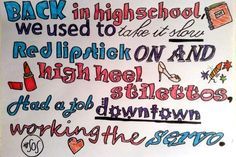 BACK in highschool,
we used to take it slow
Red lipstick ON AND
high heel
stilettos.
Had a job downtown
working the servo.